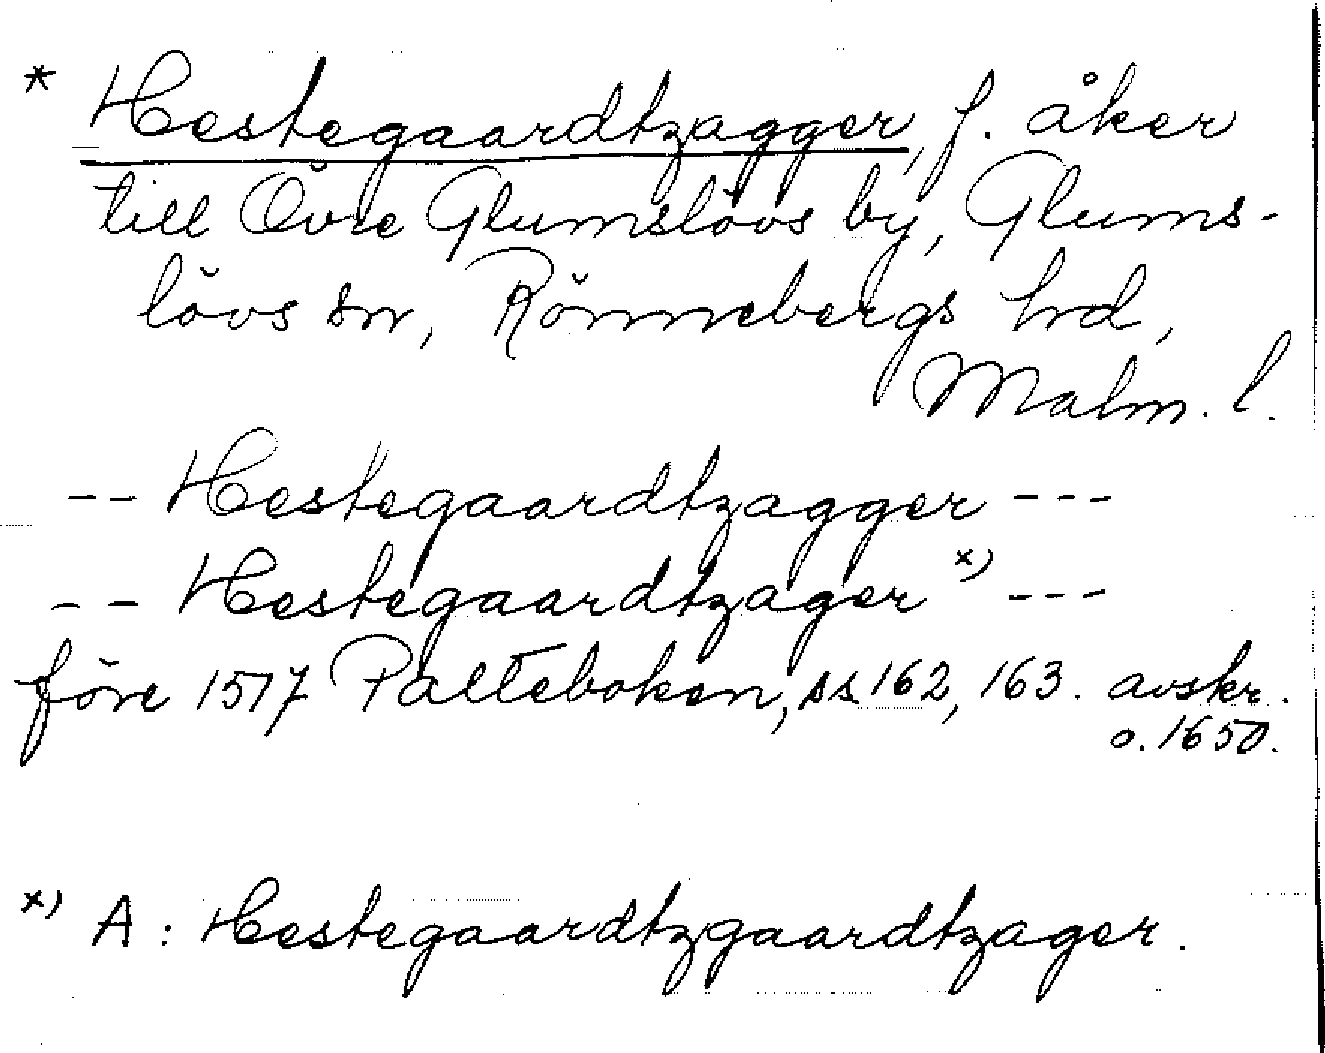 * Hestegaardtzagger, f. åker
till Övre Glumslövs by, Glums-
lövs sn, Rönnebergs hd,
Malm. l.
-- Hestegaardtzagger ---
-- Hestegaardtzager x) ---
före 1517 Palteboken, ss 162, 163. avskr.
o. 1650.
x) A: Hestegaardtzgaardtzager.